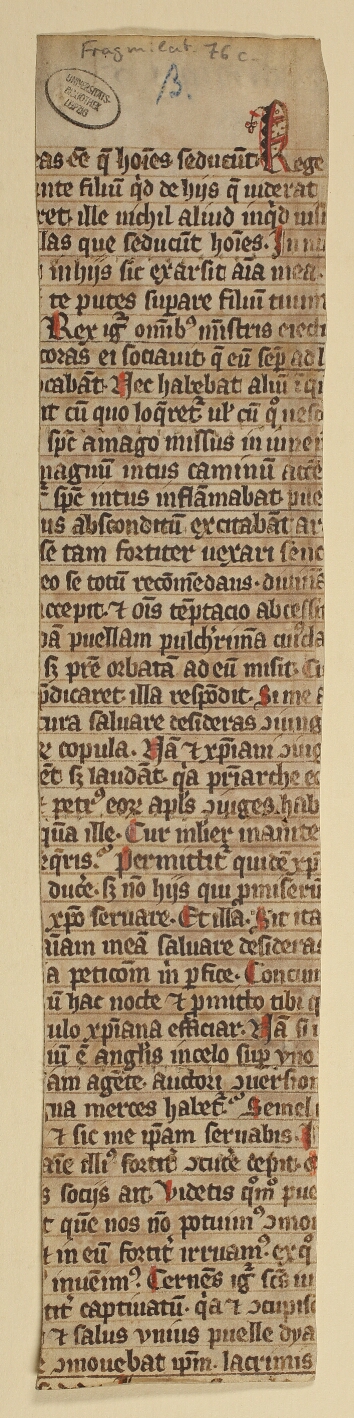 Fragm. lat. 76 c
B.
UNIVERSITÄTS-
BIBLIOTHEK
LEIPZIG
ras eē q̄ hoīes seducūt. Rege
nte filiū q̇d de hijs q̄ uiderat
ret. ille nichil aliud inq̇d nisi
las que seducūt hoīes. In nu
in hijs sic exarsit aīa mea.
te putes supare filiū tuum
Rex igr̄ omībꝰ mīstris eiecti
coras ei sociauit q̄ eū sep̄ ad l
cabāt. Nec habebat aliū
it cū quo loq̄retˀ ul̄ cū qͦ uesc
spc̄ a mago missus in iuuen
magnū intus caminū accē
spc̄ intus inflāmabat. pue
us absconditū excitabāt ar
sē tam fortiter uexari sēnc
eo se totū recōmēdans. diuinā
ccepit. ⁊ oīs tēptacio abcessi
ā puellam pulchˀrimā cuiˀda
sꝫ prē orbatā ad eū misit. Cu
p̄dicaret. illa respōdit. Si me a
cura saluare desideras ꝯiung
copula. Nā ⁊ xp̄iani ꝯiug
ēt sꝫ laudāt. q̇a pr̄iarche eo
petrˀꝰ eoꝝ apl̄s ꝯiuges hab
qūa ille. Cur mlˀier inanite
eq̇ris. Permittitˀ quidē xp̄i
ducˀe. sꝫ nō hijs qui ꝓmiserūt
xp̄o seruare. Et illa. Sit ita
nīam meā saluare desideras
a peticōm in ꝑfice. Concum
ū hac nocte ⁊ ꝓmitto tibi q
ulo xp̄iana efficiar. Nā si u
iū ē anglˀis in celo sup̄ vno
am agēte. auctori ꝯuersion
na merces habetˀ. Semel
⁊ sic me ip̄am seruabis.
aīe illiꝰ fortitˀ ꝯcutˀe cepit.
sociis ait. Videtis qͦm pue
t que nos nō potuimꝰ ꝯmoue
t in eū fortitˀ irruamꝰ. ex qͦ
inuenimꝰ. Cernēs igr̄ sc̄s
titˀ captiuatū. q̇a ⁊ ꝯcupisc
⁊ salus vnius puelle dya
ꝯmouebat ip̄m. lacrimis